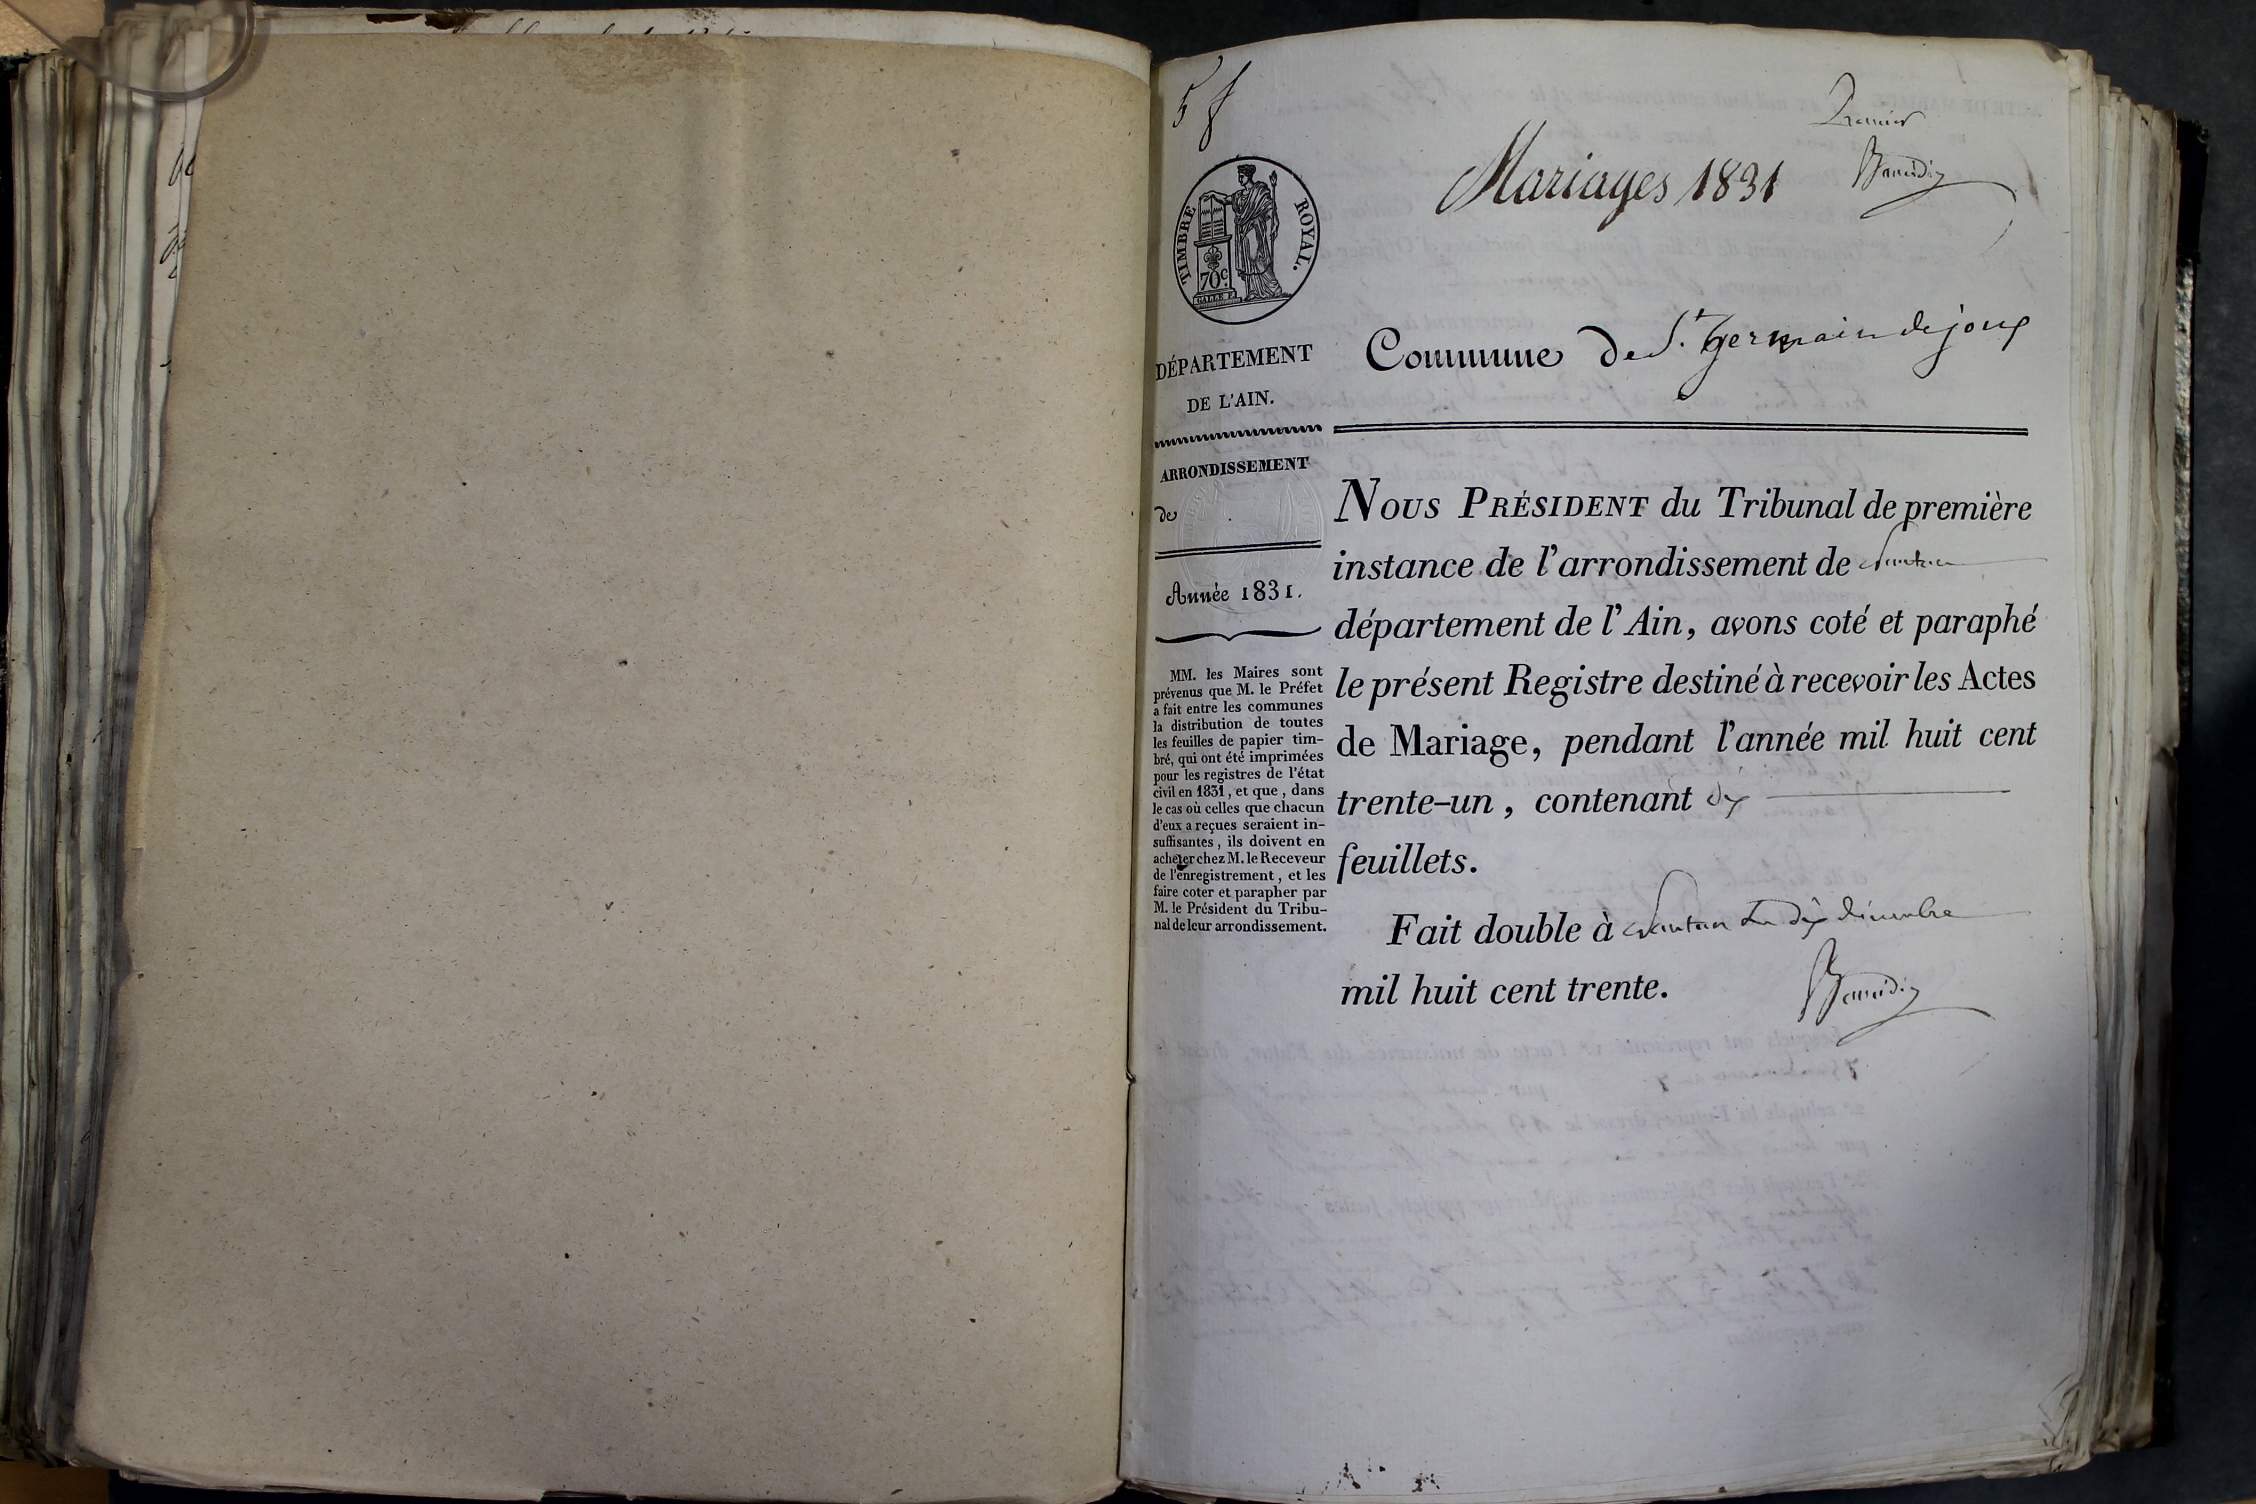 5 f
Premier
Mariages 1831
TIMBRE ROYAL.
70c.
Commune de St. germain de joux
DÉPARTEMENT
DE L'AIN.
ARRONDISSEMENT
de
Année 1831.
MM. les Maires sont
prévenus que M. le Préfet
a fait entre les communes
la distribution de toutes
les feuilles de papier tim-
bré, qui ont été imprimées
pour les registres de l'état
civil en 1831, et que, dans
le cas où celles que chacun
d'eux a reçues seraient in-
suffisantes, ils doivent en
acheter chez M. le Receveur
de l'enregistrement, et les
faire coter et parapher par
M. le Président du Tribu-
nal de leur arrondissement.
NOUS PRÉSIDENT du Tribunal de première
instance de l'arrondissement de Nantua
département de l'Ain, avons coté et paraphé
le présent Registre destiné à recevoir les Actes
de Mariage, pendant l'année mil huit cent
trente-un, contenant dix
feuillets.
Fait double à Nantua le dix décembre
mil huit cent trente.